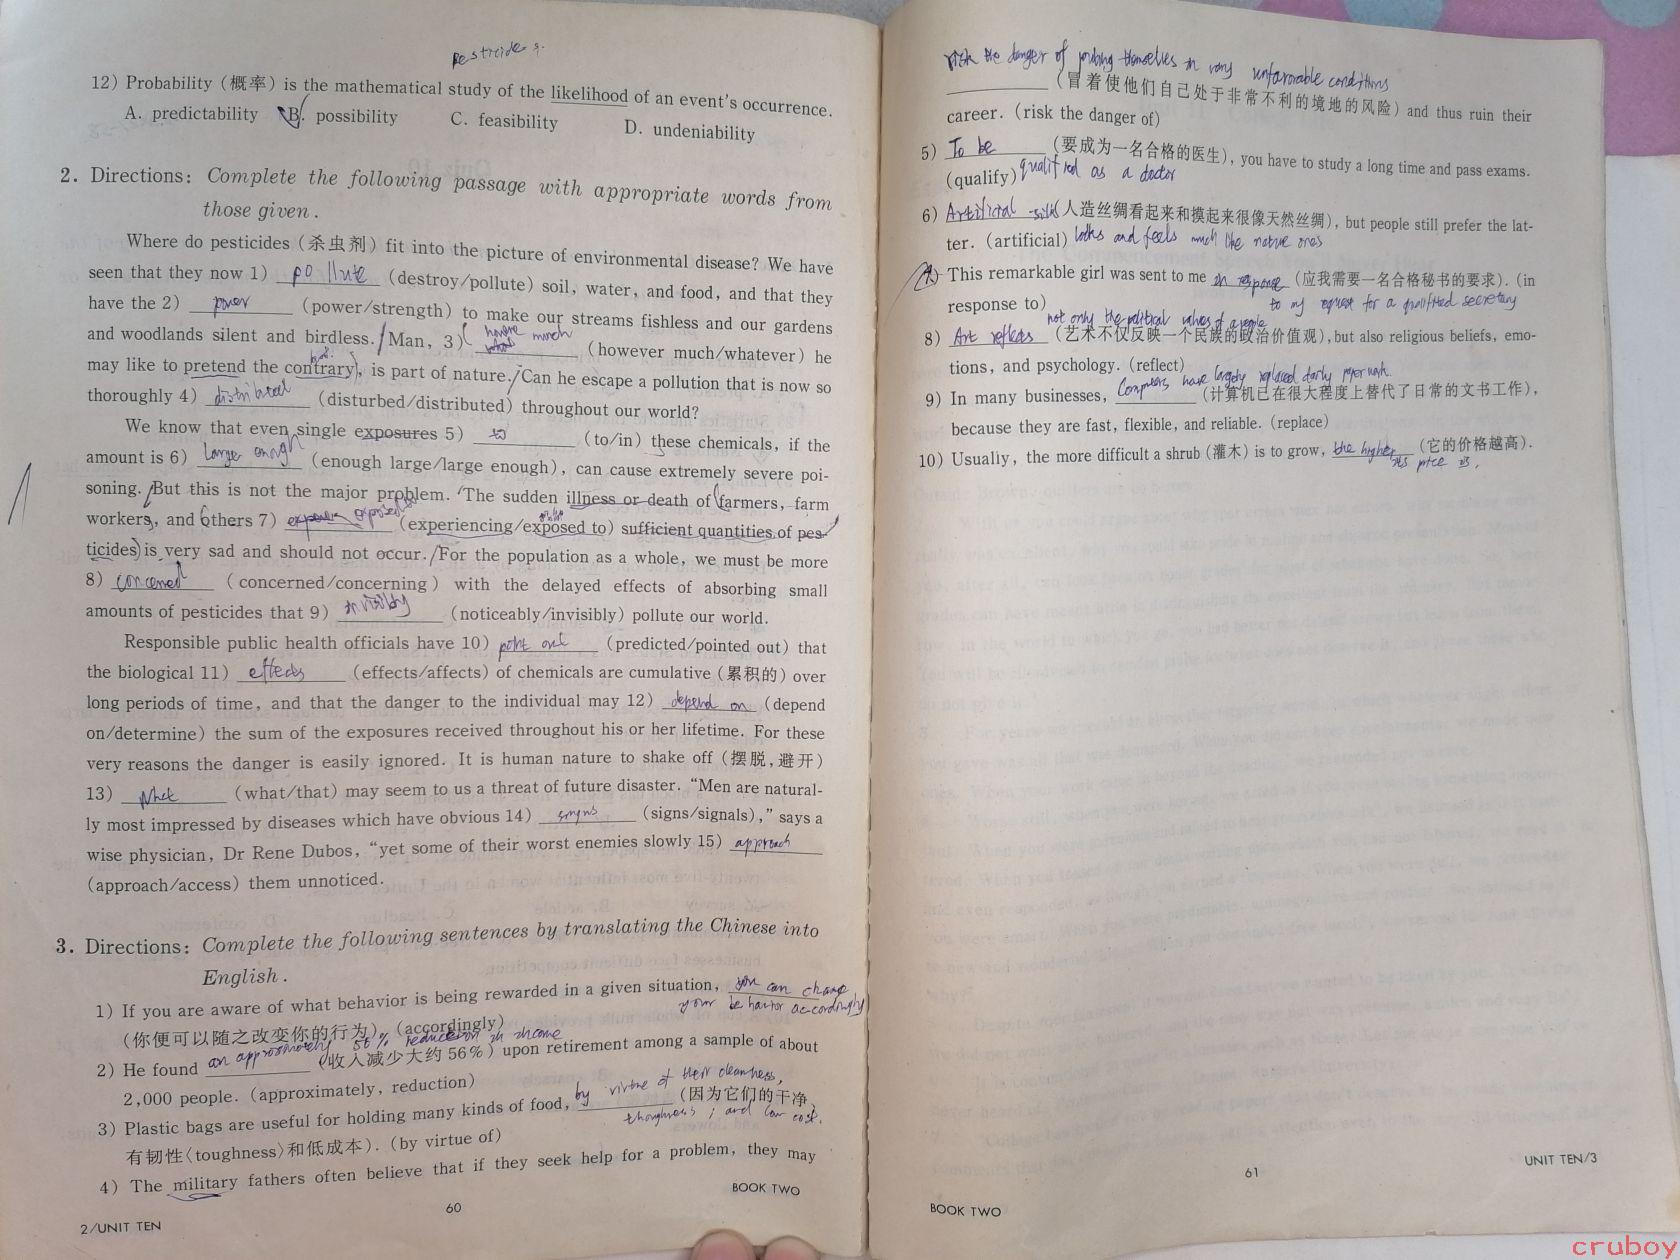 pesticides
12) Probability (概率) is the mathematical study of the likelihood of an event's occurrence.
A. predictability B. possibility C. feasibility D. undeniability
2. Directions: Complete the following passage with appropriate words from
those given.
Where do pesticides (杀虫剂) fit into the picture of environmental disease? We have
seen that they now 1) pollute (destroy/pollute) soil, water, and food, and that they
have the 2) power (power/strength) to make our streams fishless and our gardens
and woodlands silent and birdless. Man, 3) however much (however much/whatever) he
may like to pretend the contrary, is part of nature. Can he escape a pollution that is now so
thoroughly 4) distributed (disturbed/distributed) throughout our world?
We know that even single exposures 5) to (to/in) these chemicals, if the
amount is 6) large enough (enough large/large enough), can cause extremely severe poi-
soning. But this is not the major problem. The sudden illness or death of farmers, farm
workers, and others 7) exposed to (experiencing/exposed to) sufficient quantities of pes-
ticides is very sad and should not occur. For the population as a whole, we must be more
8) concerned (concerned/concerning) with the delayed effects of absorbing small
amounts of pesticides that 9) invisibly (noticeably/invisibly) pollute our world.
Responsible public health officials have 10) point out (predicted/pointed out) that
the biological 11) effects (effects/affects) of chemicals are cumulative (累积的) over
long periods of time, and that the danger to the individual may 12) depend on (depend
on/determine) the sum of the exposures received throughout his or her lifetime. For these
very reasons the danger is easily ignored. It is human nature to shake off (摆脱,避开)
13) what (what/that) may seem to us a threat of future disaster. "Men are natural-
ly most impressed by diseases which have obvious 14) signs (signs/signals)," says a
wise physician, Dr Rene Dubos, "yet some of their worst enemies slowly 15) approach
(approach/access) them unnoticed.
3. Directions: Complete the following sentences by translating the Chinese into
English.
1) If you are aware of what behavior is being rewarded in a given situation, you can change
your behavior accordingly
(你便可以随之改变你的行为). (accordingly)
an approximately 56% reduction in income
2) He found (收入减少大约56%) upon retirement among a sample of about
2,000 people. (approximately, reduction)
by virtue of their cleanness,
3) Plastic bags are useful for holding many kinds of food, (因为它们的干净、
toughness, and low cost.
有韧性〈toughness〉和低成本). (by virtue of)
4) The military fathers often believe that if they seek help for a problem, they may
BOOK TWO
60
2/UNIT TEN
risk the danger of putting themselves in very unfavorable conditions
(冒着使他们自己处于非常不利的境地的风险) and thus ruin their
career. (risk the danger of)
5) To be (要成为一名合格的医生), you have to study a long time and pass exams.
(qualify) qualified as a doctor
6) Artificial silk (人造丝绸看起来和摸起来很像天然丝绸), but people still prefer the lat-
ter. (artificial) looks and feels much like native ones
This remarkable girl was sent to me in response (应我需要一名合格秘书的要求). (in
response to) to my request for a qualified secretary
not only the political values of a people
8) Art reflects (艺术不仅反映一个民族的政治价值观), but also religious beliefs, emo-
tions, and psychology. (reflect)
Computers have largely replaced daily paperwork.
9) In many businesses, (计算机已在很大程度上替代了日常的文书工作),
because they are fast, flexible, and reliable. (replace)
10) Usually, the more difficult a shrub (灌木) is to grow, the higher (它的价格越高).
its price is.
61
UNIT TEN/3
BOOK TWO
cruboy